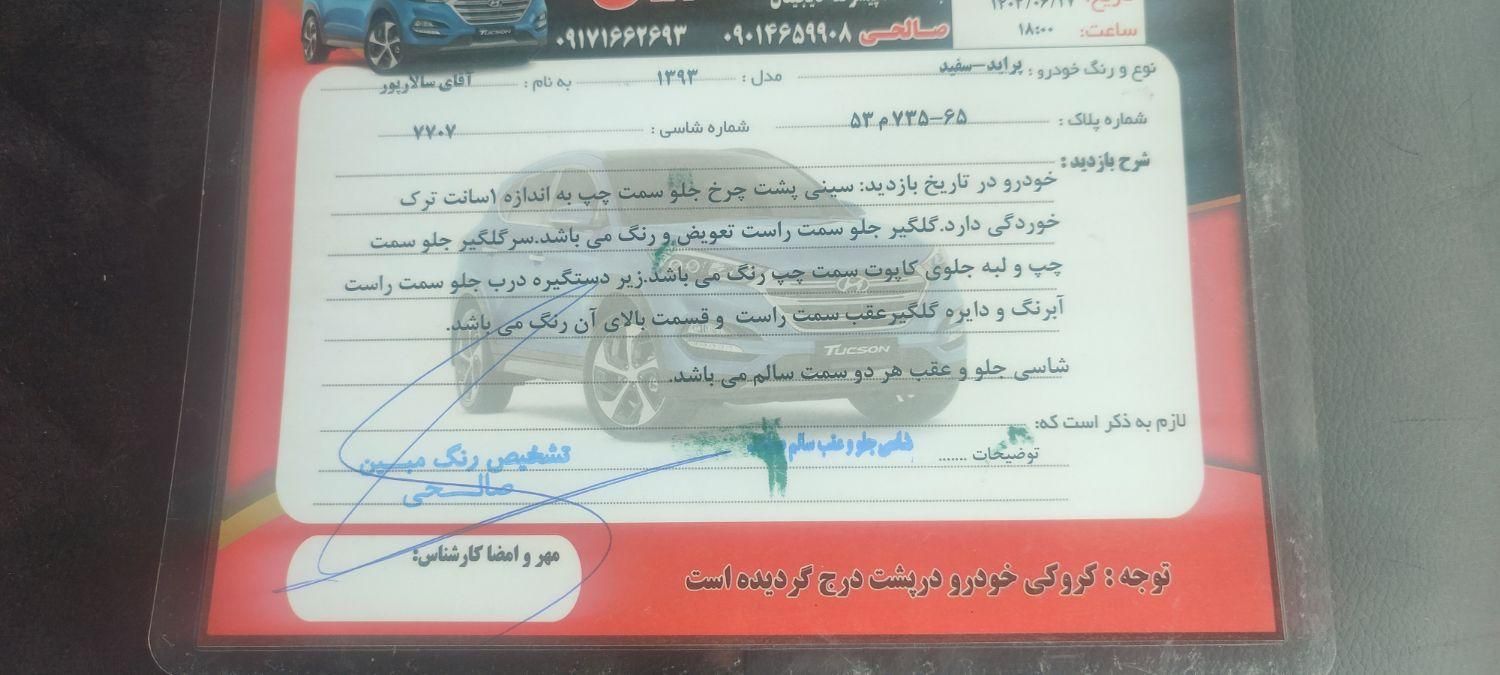 تاریخ:
ساعت: ۱۸:۰۰
صالحی ۰۹۰۱۴۶۵۹۹۰۸ ۰۹۱۷۱۶۶۲۶۹۳
TUCSON
نوع و رنگ خودرو: پراید-سفید مدل: ۱۳۹۳ به نام: آقای سالارپور
شماره پلاک: ۶۵-۷۳۵ م ۵۳ شماره شاسی: ۷۷۰۷
شرح بازدید:
خودرو در تاریخ بازدید: سینی پشت چرخ جلو سمت چپ به اندازه ۱سانت ترک
خوردگی دارد.گلگیر جلو سمت راست تعویض و رنگ می باشد.سرگلگیر جلو سمت
چپ و لبه جلوی کاپوت سمت چپ رنگ می باشد.زیر دستگیره درب جلو سمت راست
آبرنگ و دایره گلگیرعقب سمت راست و قسمت بالای آن رنگ می باشد.
TUCSON
شاسی جلو و عقب هر دو سمت سالم می باشد.
لازم به ذکر است که:
توضیحات ....... شاسی جلو و عقب سالم
تشخیص رنگ مبین
صالحی
مهر و امضا کارشناس:
توجه : کروکی خودرو درپشت درج گردیده است